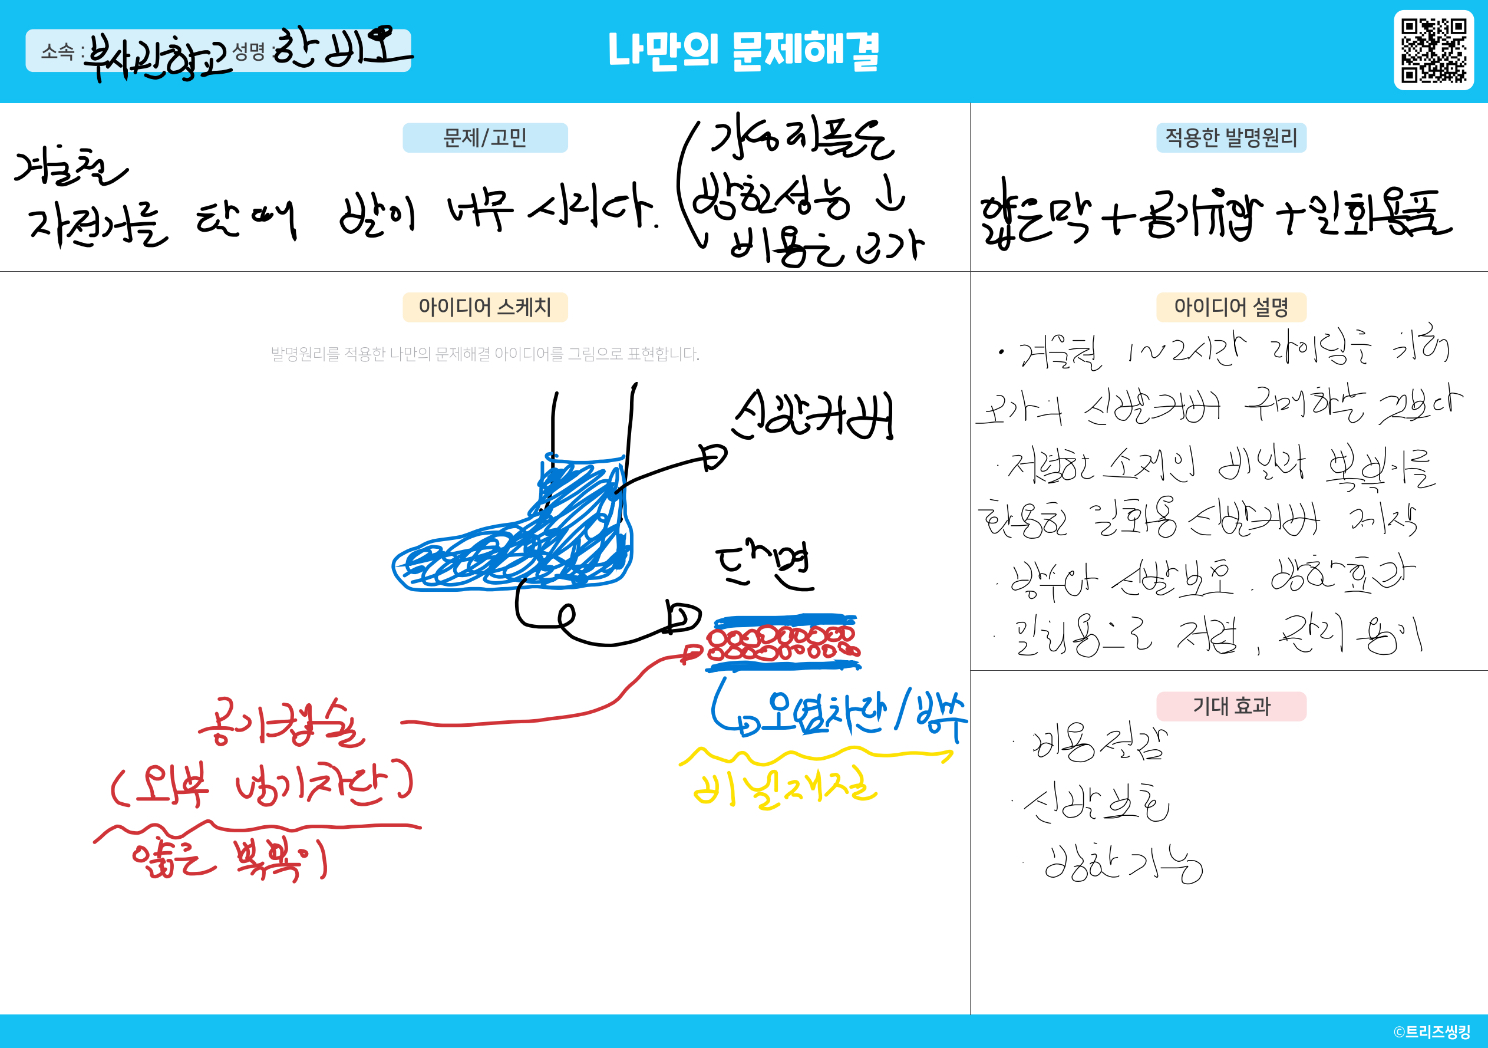 소속 : 부사관학교 성명 : 한비오
나만의 문제해결
문제/고민
겨울철
자전거를 탈 때 발이 너무 시리다.
기성제품은
방한성능 ↓
비용은 고가
적용한 발명원리
얇은막 + 공기유압 + 일회용품
아이디어 스케치
발명원리를 적용한 나만의 문제해결 아이디어를 그림으로 표현합니다.
신발커버
단면
오염차단 / 방수
비닐재질
공기캡슐
(외부 냉기차단)
얇은 뽁뽁이
아이디어 설명
· 겨울철 1~2시간 라이딩을 위해
고가의 신발커버 구매하는 것보다
· 저렴한 소재인 비닐과 뽁뽁이를
활용한 일회용 신발커버 제작
· 방수와 신발보호. 방한효과
· 일회용으로 저렴, 관리 용이
기대 효과
· 비용절감
· 신발보호
· 방한기능
©트리즈씽킹